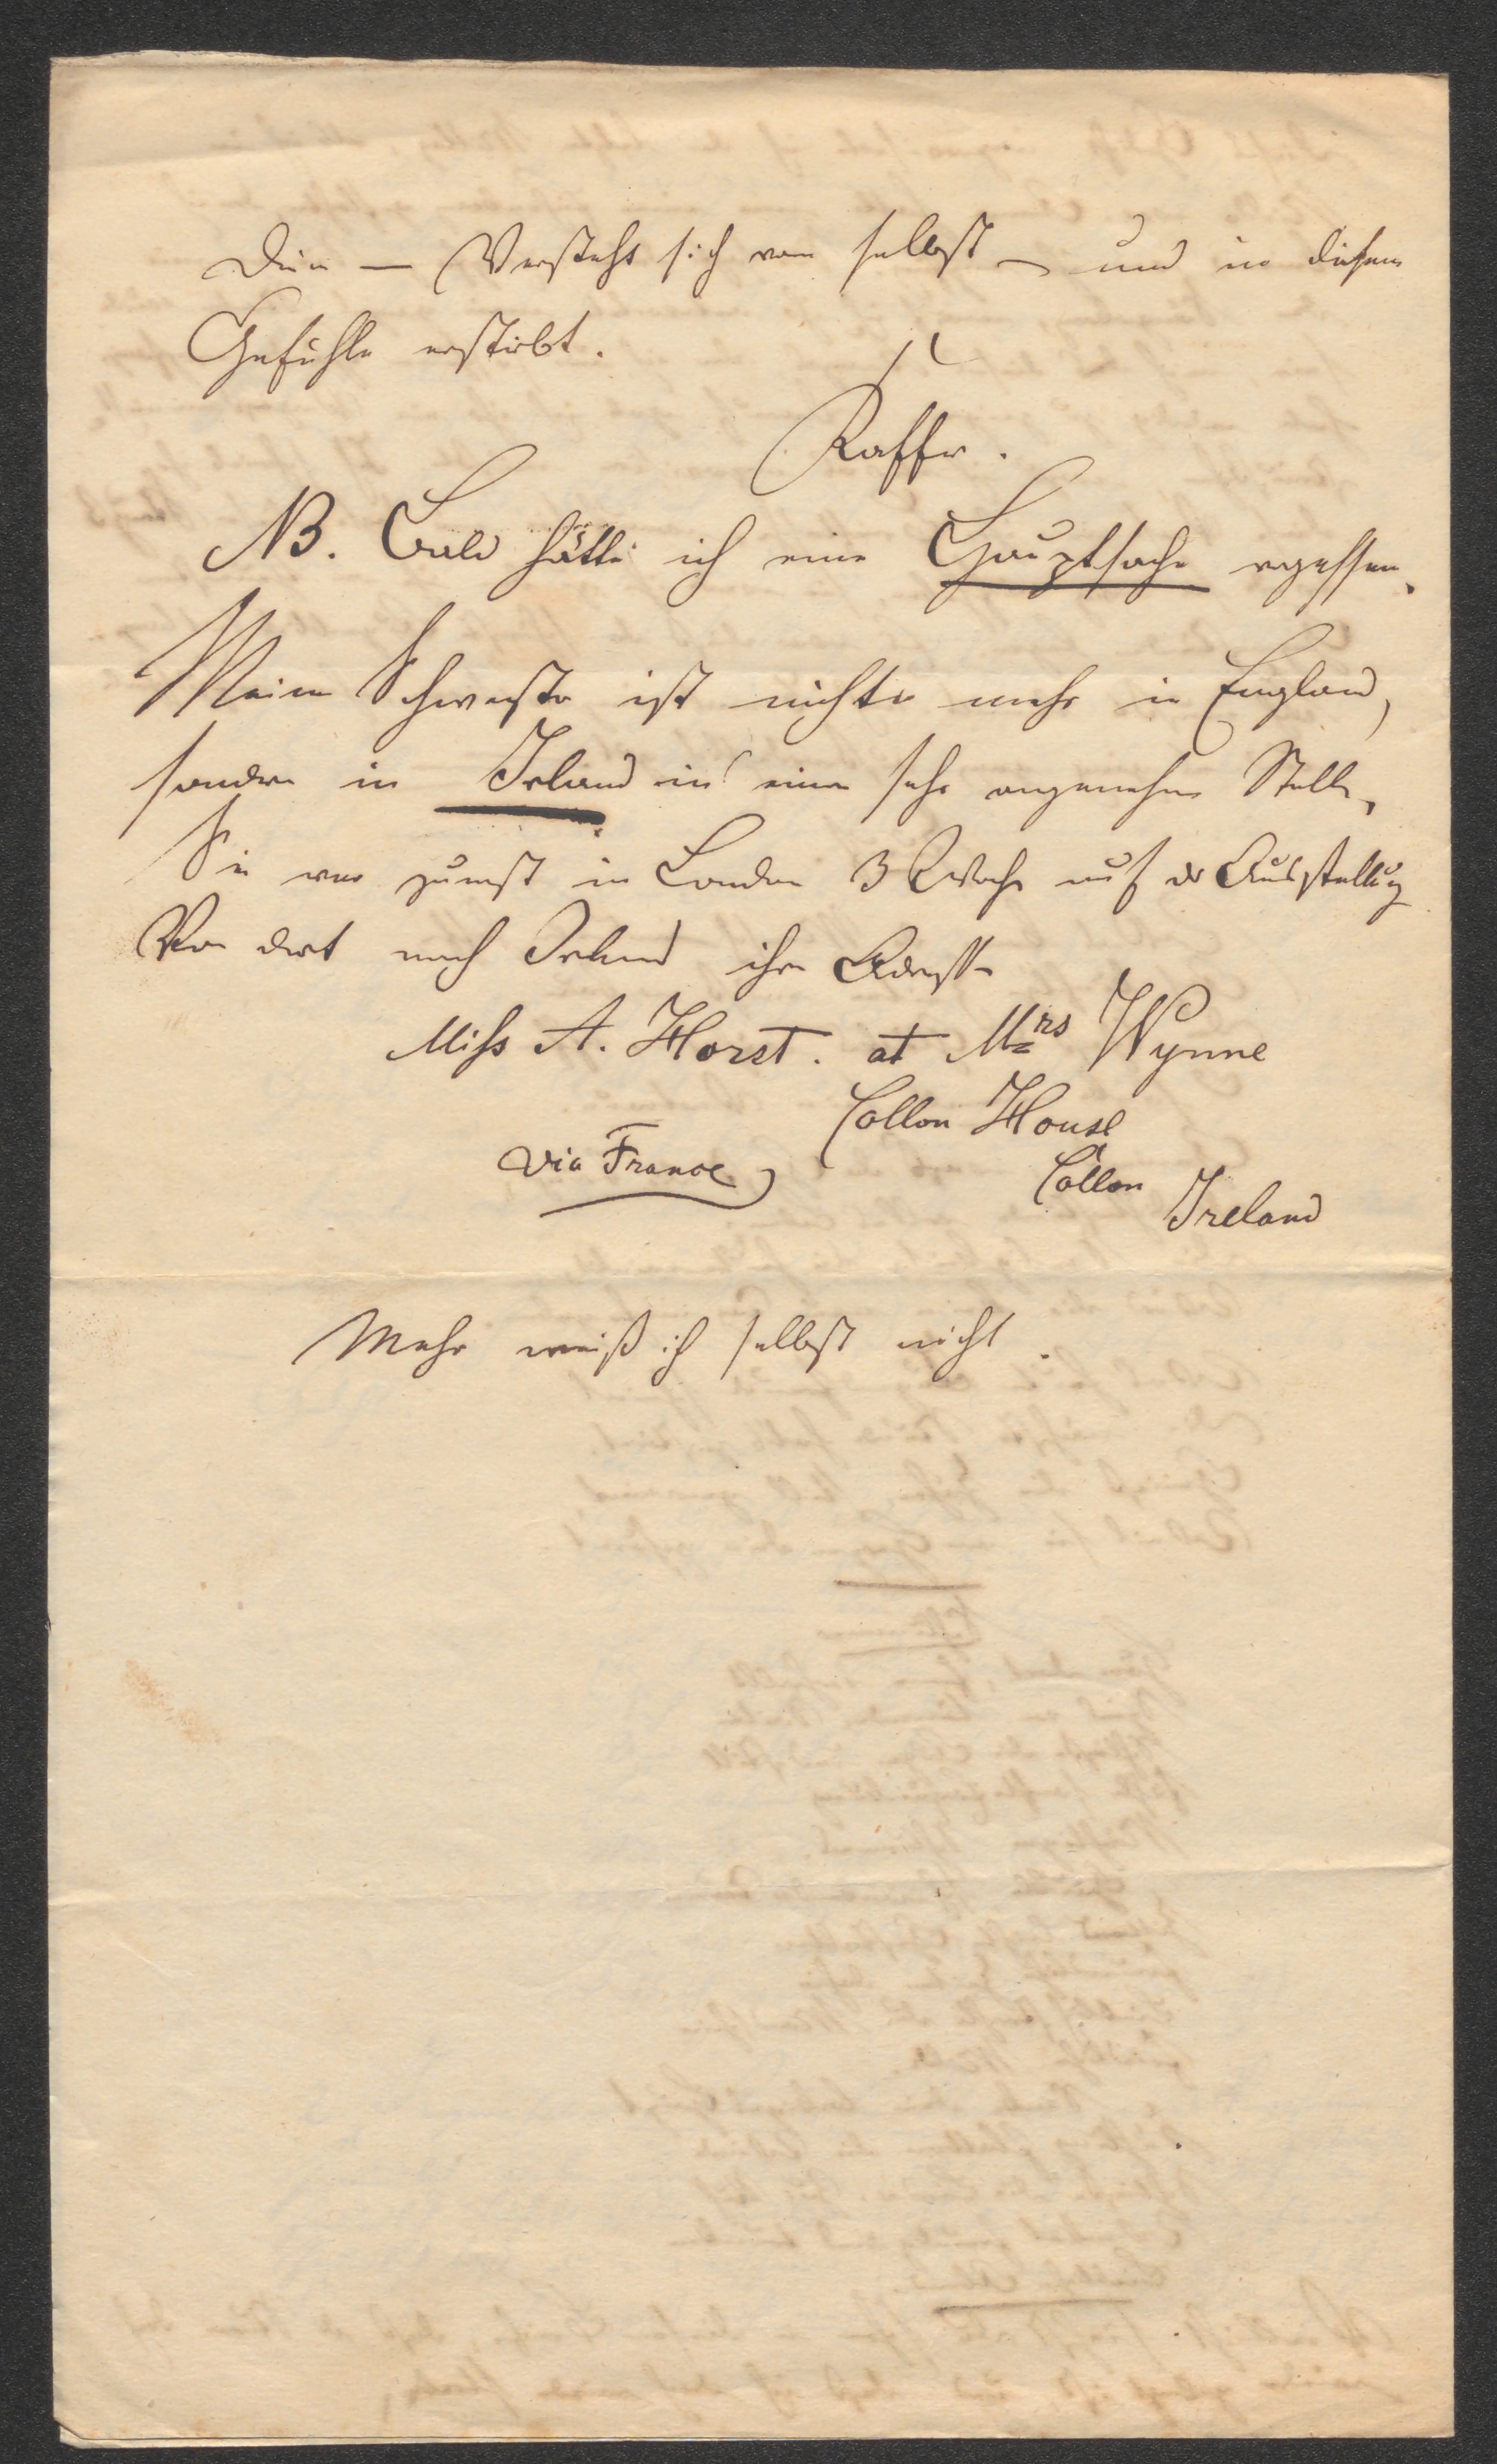 Dein — Versteht sich von selbst — und in diesem
Gefühle erstirbt.
Kaffer.
NB. Bald hätte ich eine Hauptsache vergessen.
Meine Schwester ist nicht mehr in England,
sondern in Irland in einer sehr angenehmen Stelle,
Sie war zuerst in London 3 Woche auf der Ausstellung
Von dort nach Irland ihre Adresse
Miss A. Horst. at Mrs Wynne
Collon House
via France
Collon
Ireland
Mehr weiß ich selbst nicht.